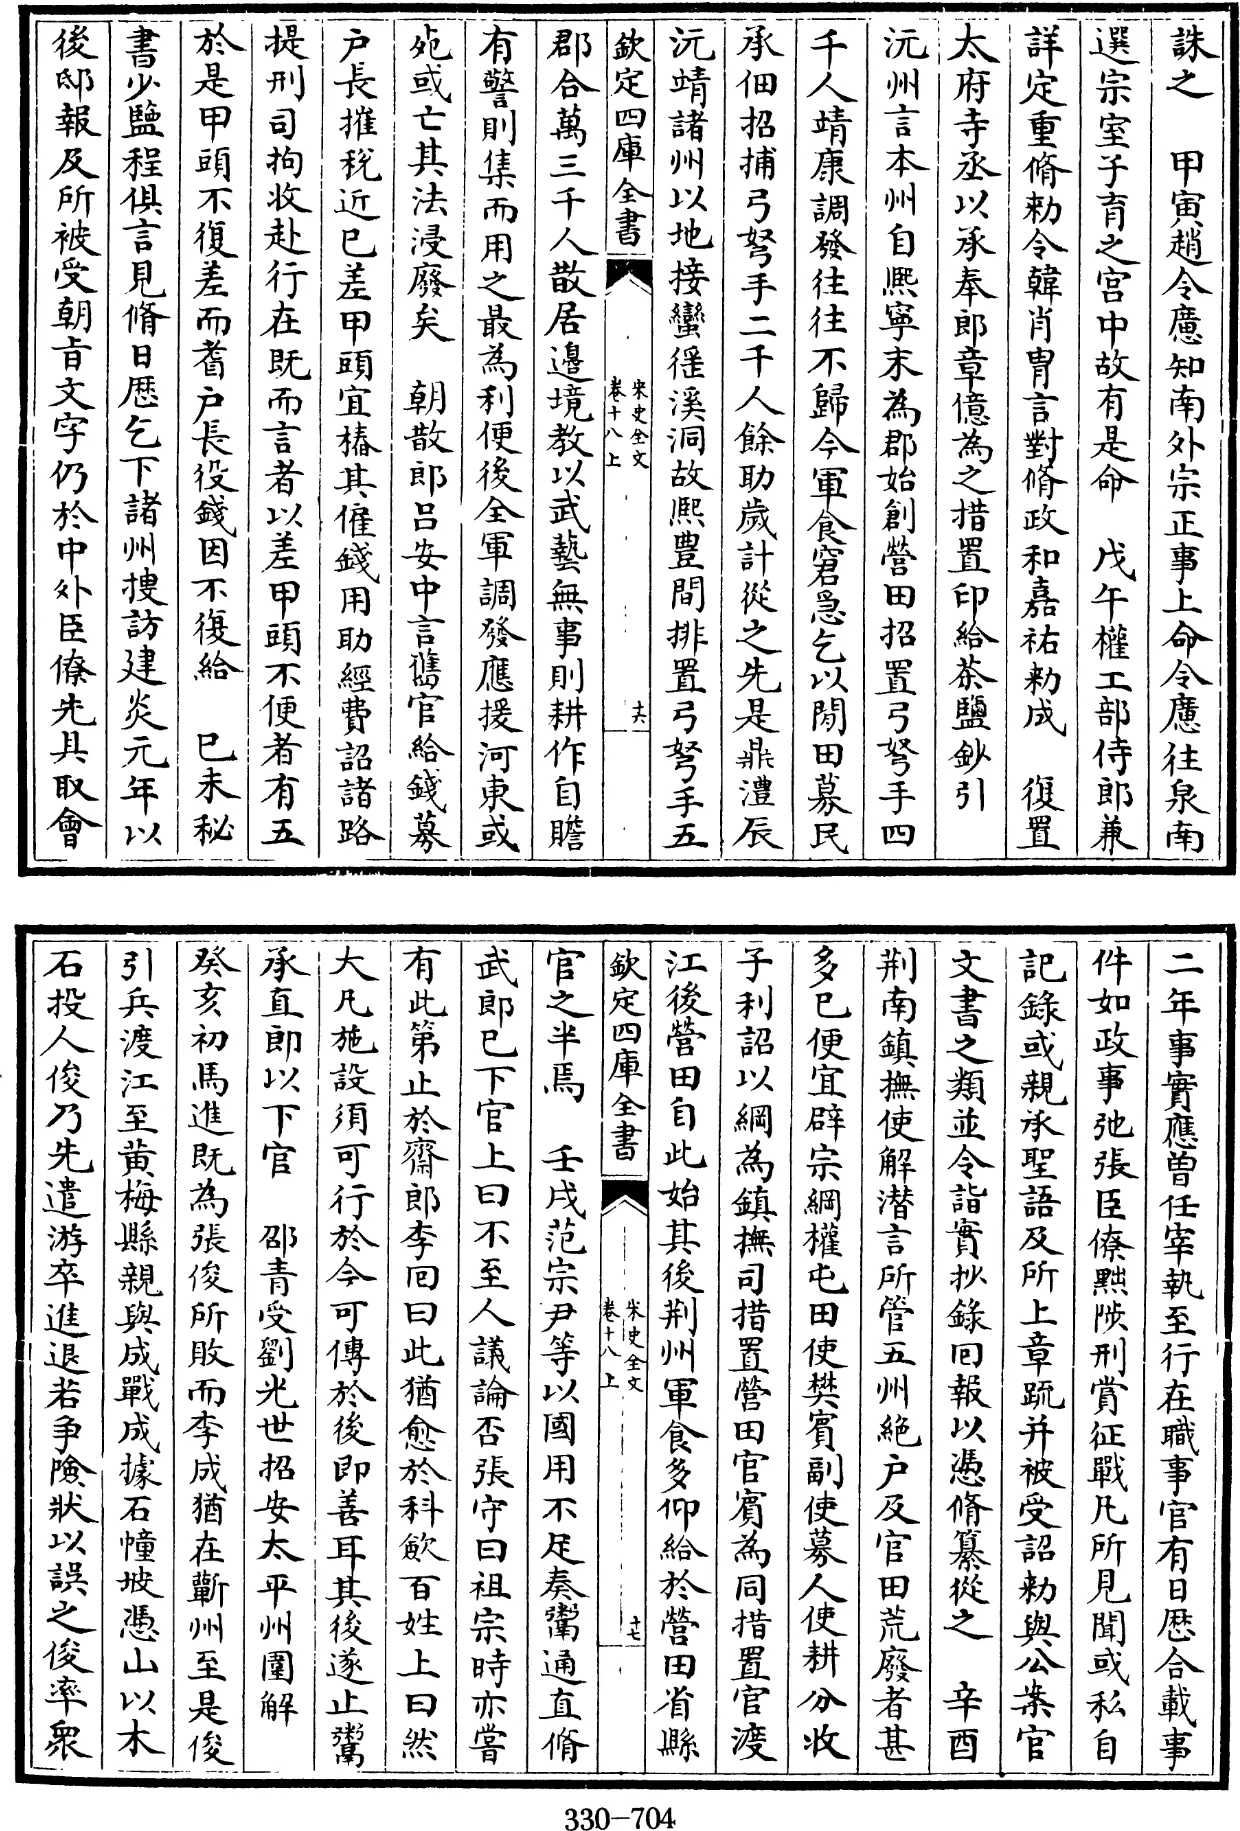 誅之　甲寅趙令𢊊知南外宗正事上命令𢊊往泉南
選宗室子育之宫中故有是命　戊午權工部侍郎兼
詳定重脩勅令韓肖胄言對脩政和嘉祐勅成　復置
太府寺丞以承奉郎章億為之措置印給茶鹽鈔引
沅州言本州自熙寧末為郡始創營田招置弓弩手四
千人靖康調發往往不歸今軍食窘急乞以閒田募民
承佃招捕弓弩手二千人餘助歲計從之先是鼎澧辰
沅靖諸州以地接蠻徭溪洞故熙豐間排置弓弩手五
欽定四庫全書
宋史全文
卷十八上
十六
郡合萬三千人散居邉境教以武藝無事則耕作自贍
有警則集而用之最為利便後全軍調發應援河東或
死或亡其法浸廢矣　朝散郎吕安中言舊官給錢募
户長摧税近已差甲頭宜樁其僱錢用助經費詔諸路
提刑司拘收赴行在既而言者以差甲頭不便者有五
於是甲頭不復差而耆户長役錢因不復給　已未秘
書少監程俱言見脩日厯乞下諸州搜訪建炎元年以
後邸報及所被受朝旨文字仍於中外臣僚先具取會
二年事實應曽任宰執至行在職事官有日厯合載事
件如政事弛張臣僚黜陟刑賞征戰凡所見聞或私自
記錄或親承聖語及所上章疏并被受詔勅與公案官
文書之類並令詣實抄錄囘報以憑脩纂從之　辛酉
荆南鎮撫使解潛言所管五州絶户及官田荒廢者甚
多已便宜辟宗綱權屯田使樊賓副使募人使耕分收
子利詔以綱為鎮撫司措置營田官賓為同措置官渡
江後營田自此始其後荆州軍食多仰給於營田省縣
欽定四庫全書
宋史全文
卷十八上
十七
官之半焉　壬戌范宗尹等以國用不足奏鬻通直脩
武郎已下官上曰不至人議論否張守曰祖宗時亦嘗
有此第止於齋郎李囘曰此猶愈於科歛百姓上曰然
大凡施設須可行於今可傳於後即善耳其後遂止鬻
承直郎以下官　邵青受劉光世招安太平州圍解
癸亥初馬進既為張俊所敗而李成猶在蘄州至是俊
引兵渡江至黄梅縣親與成戰成據石幢坡憑山以木
石投人俊乃先遣游卒進退若争險狀以誤之俊率衆
330-704